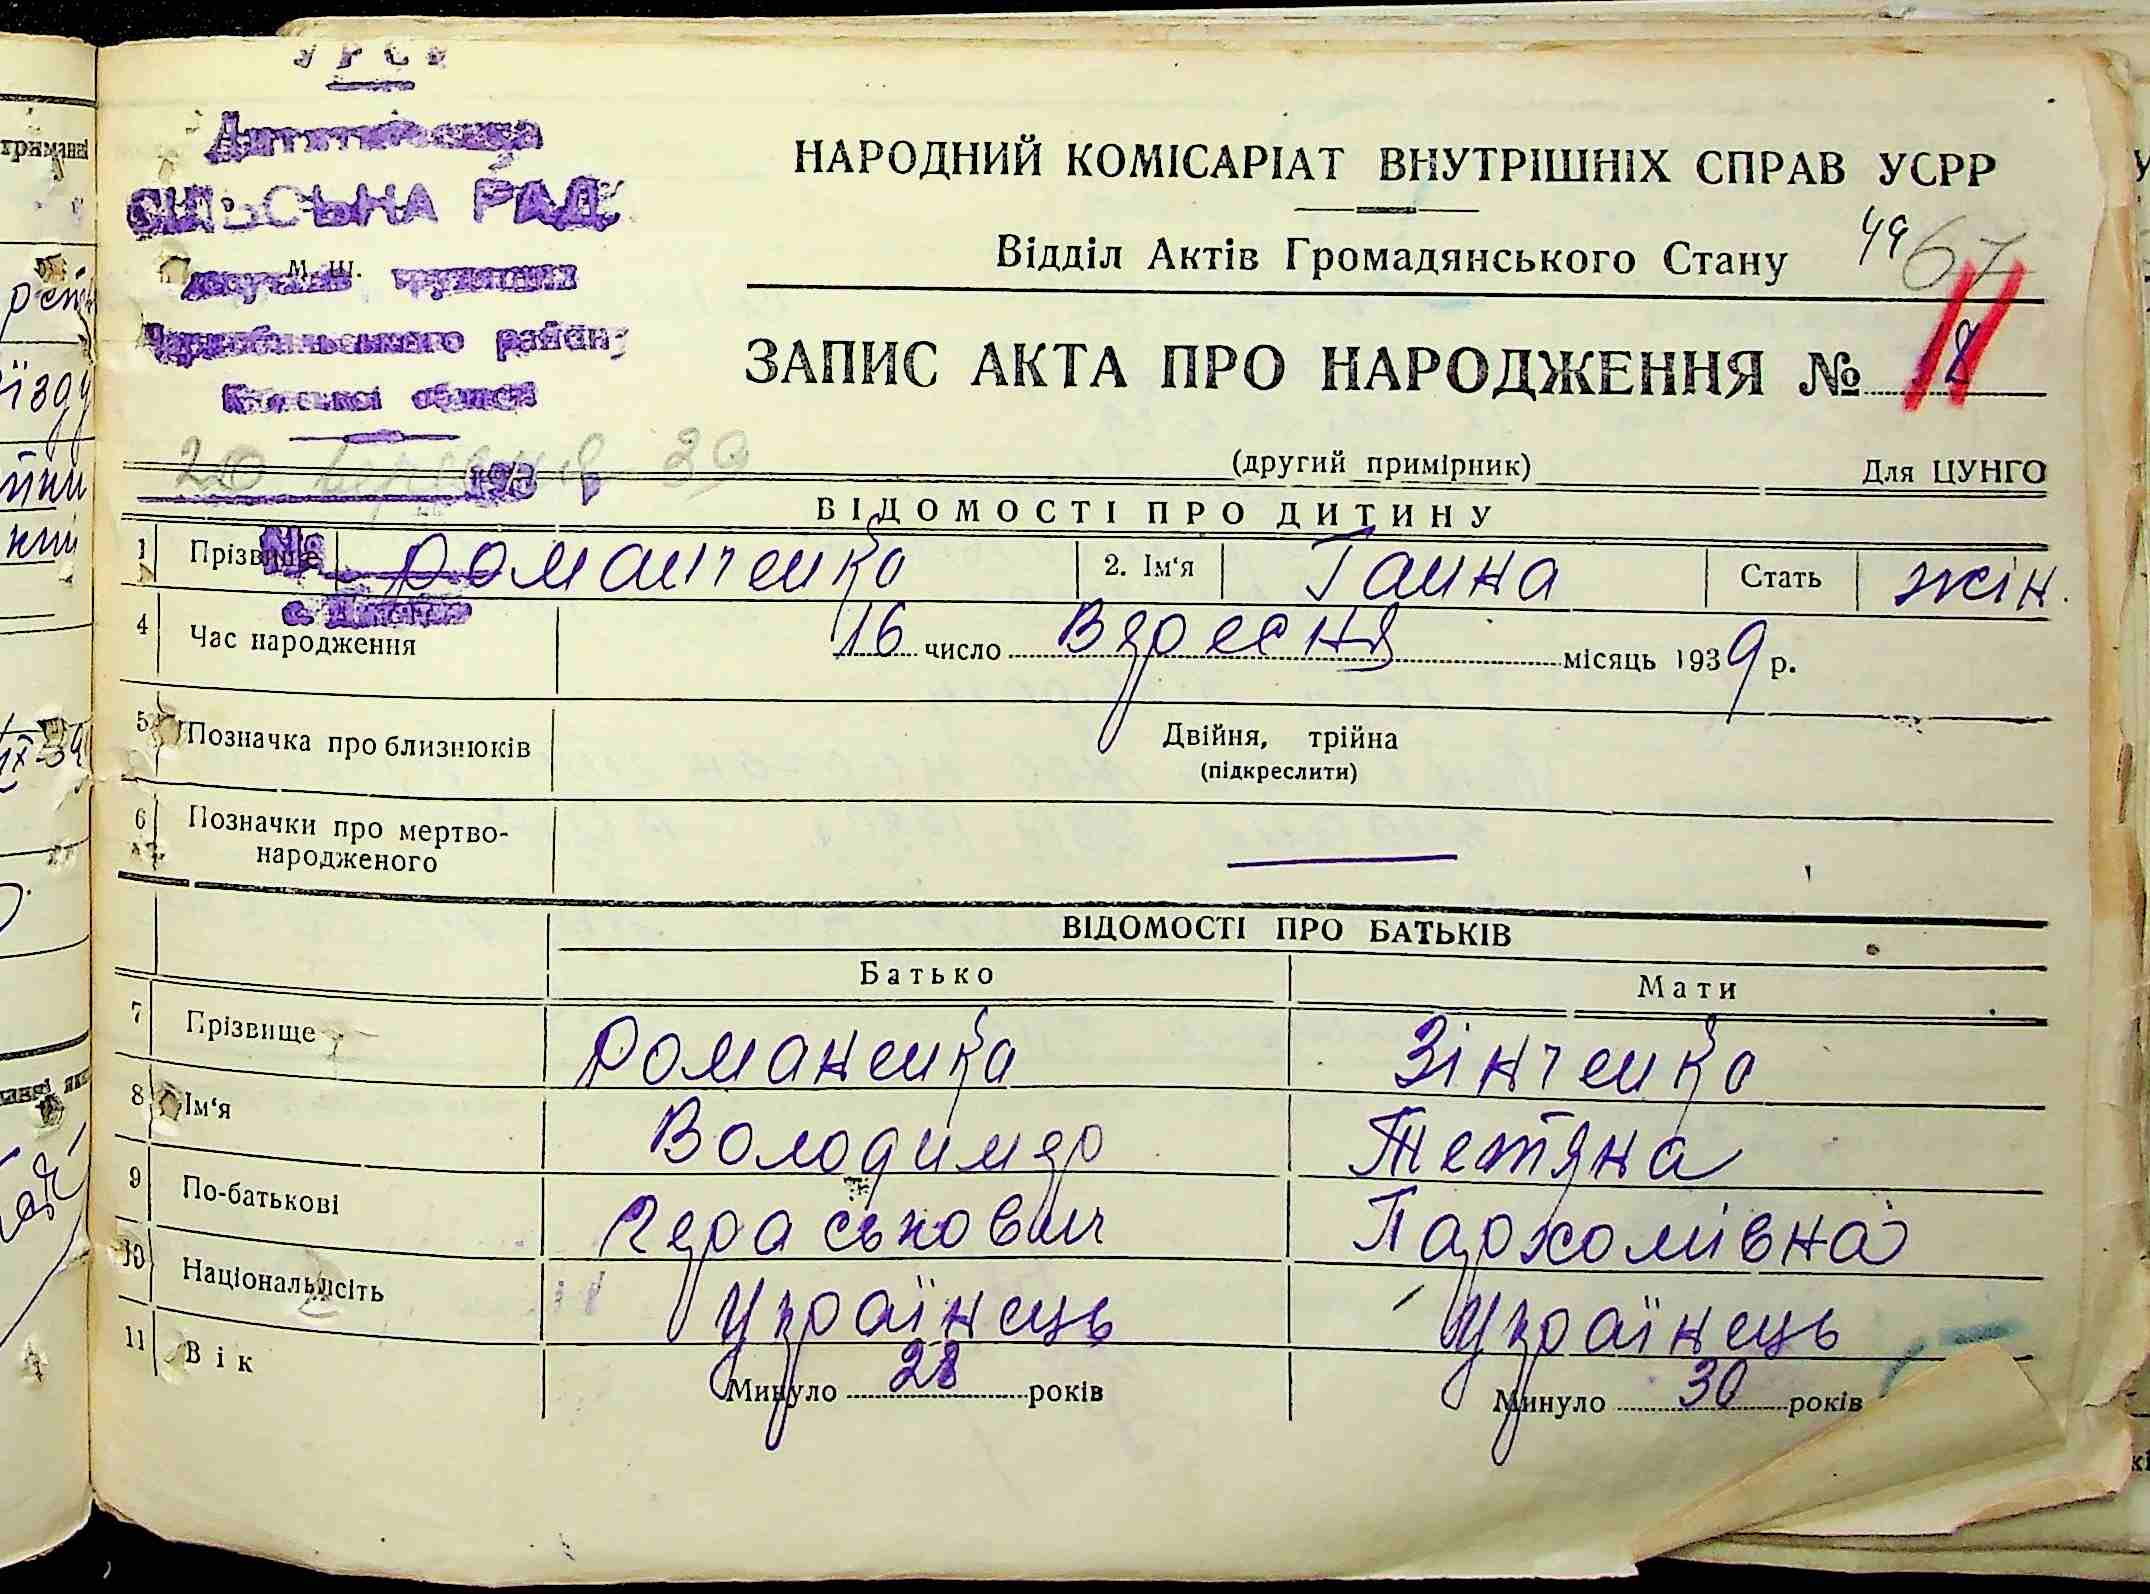 УРСР
Дитятківська
СІЛЬСЬКА РАДА
М. Ш.
депутатів трудящих
Чорнобильського району
Київської області
20 вересня 39
193 р
№
с. Дитятки
НАРОДНИЙ КОМІСАРІАТ ВНУТРІШНІХ СПРАВ УСРР
Відділ Актів Громадянського Стану
49 67
ЗАПИС АКТА ПРО НАРОДЖЕННЯ № 18
(другий примірник) Для ЦУНГО
ВІДОМОСТІ ПРО ДИТИНУ
1 Прізвище Романченко 2. Ім'я Ганна Стать жін.
4 Час народження 16 число Вересня місяць 1939 р.
5 Позначка про близнюків Двійня, трійна
(підкреслити)
6 Позначки про мертво-
народженого
ВІДОМОСТІ ПРО БАТЬКІВ
Батько Мати
7 Прізвище Романенко Зінченко
8 Ім'я Володимер Тетяна
9 По-батькові Гераськович Пархомівна
10 Національність Українець Українець
11 Вік Минуло 28 років Минуло 30 років